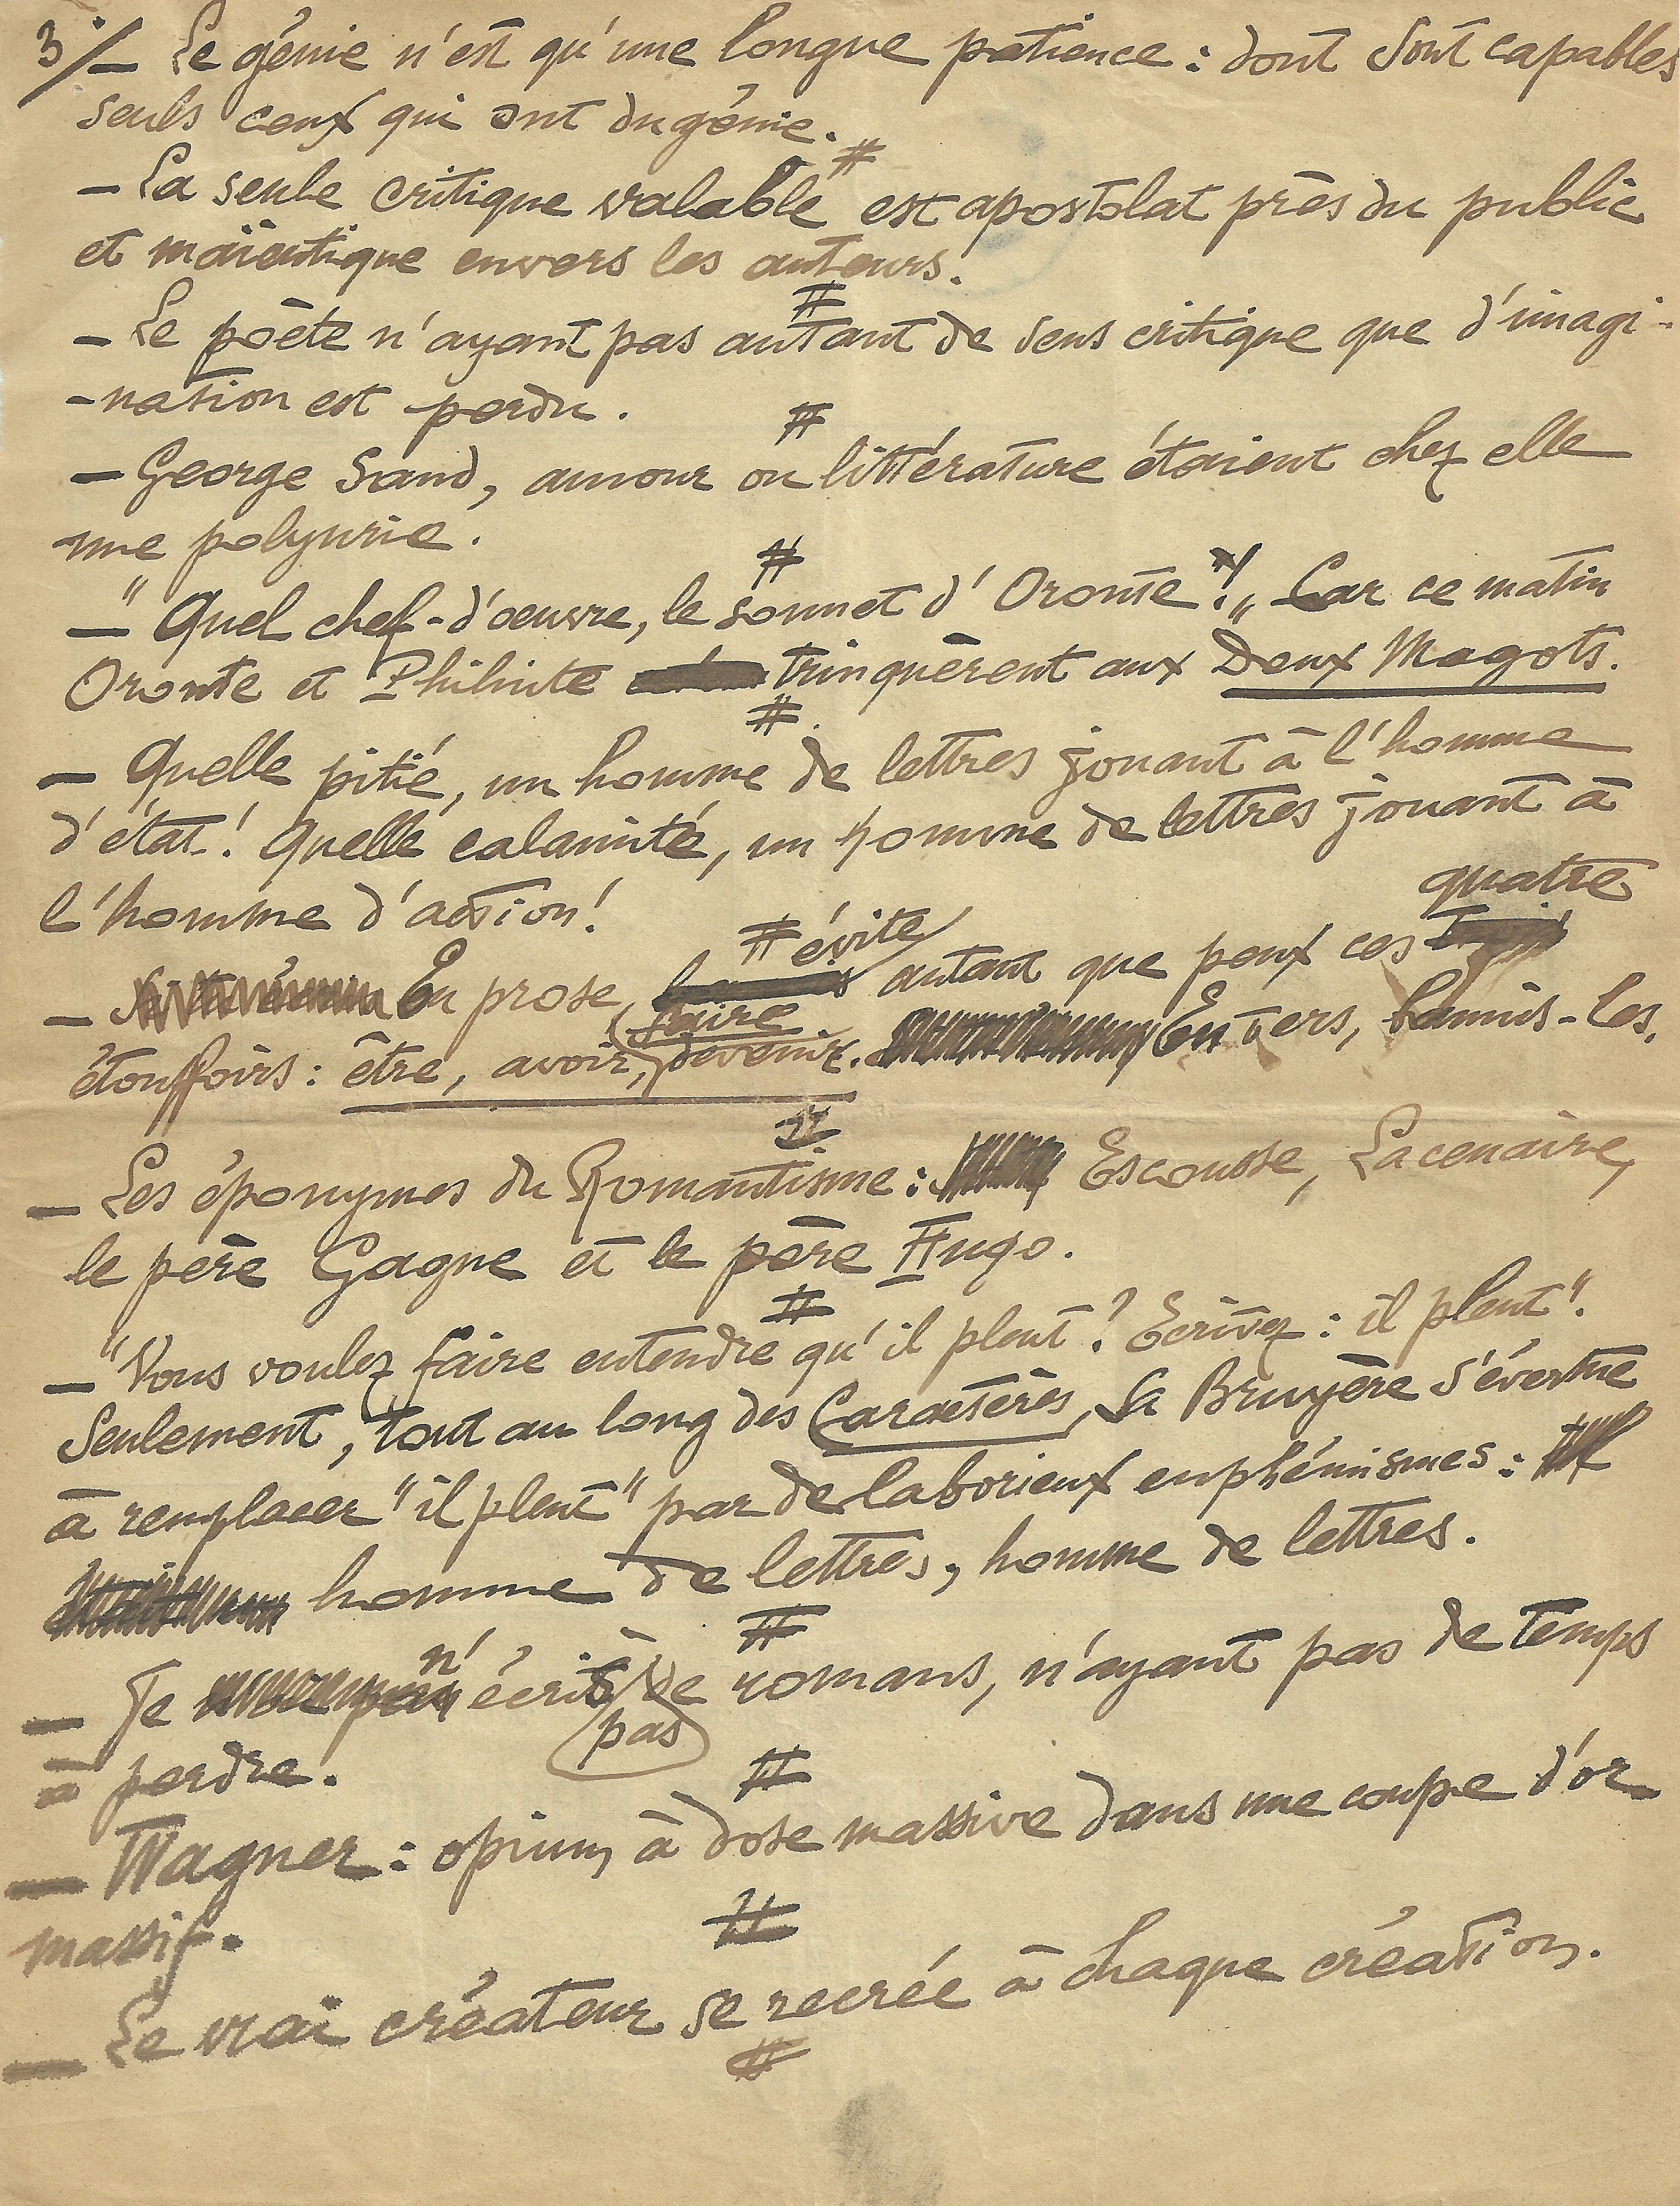 3°/— Le génie n'est qu'une longue patience : dont sont capables
seuls ceux qui ont du génie.
#
— La seule critique valable est apostolat près du public
et maïeutique envers les auteurs.
#
— Le poète n'ayant pas autant de sens critique que d'imagi-
-nation est perdu.
#
— George Sand, amour ou littérature étaient chez elle
une polyurie.
#
— "Quel chef-d'oeuvre, le sonnet d'Oronte !" Car ce matin
Oronte et Philinte trinquèrent aux Deux Magots.
#
— Quelle pitié, un homme de lettres jouant à l'homme
d'état ! Quelle calamité, un homme de lettres jouant à
l'homme d'action !
#
— En prose, évite autant que peux ces quatre
étouffoirs : être, avoir, faire, devenir. En vers, bannis-les.
#
— Les éponymes du Romantisme : Escousse, Lacenaire,
le père Gagne et le père Hugo.
#
— "Vous voulez faire entendre qu'il pleut ? Ecrivez : il pleut".
Seulement, tout au long des Caractères, La Bruyère s'évertue
à remplacer "il pleut" par de laborieux euphémismes :
homme de lettres, homme de lettres.
#
— Je n'écris pas de romans, n'ayant pas de temps
à perdre.
#
— Wagner : opium à dose massive dans une coupe d'or
massif.
#
— Le vrai créateur se recrée à chaque création.
#